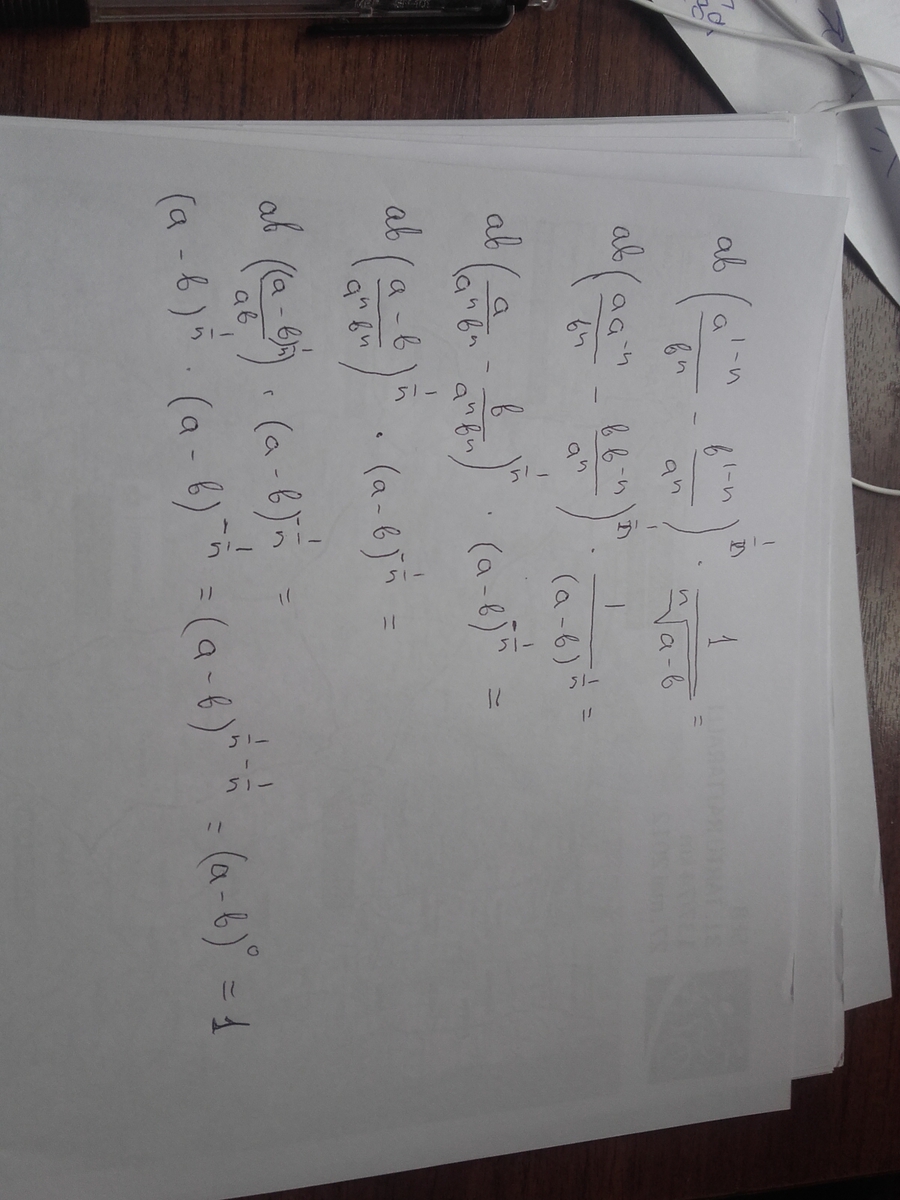 ab (a^{1-n}/b^n - b^{1-n}/a^n)^{1/n} · 1/ⁿ√(a-b) =
ab (aa^{-n}/b^n - bb^{-n}/a^n)^{1/n} · 1/(a-b)^{1/n} =
ab (a/(a^n b^n) - b/(a^n b^n))^{1/n} · (a-b)^{-1/n} =
ab ((a-b)/(a^n b^n))^{1/n} · (a-b)^{-1/n} =
ab ((a-b)^{1/n}/(ab)) · (a-b)^{-1/n} =
(a-b)^{1/n} · (a-b)^{-1/n} = (a-b)^{1/n - 1/n} = (a-b)^0 = 1